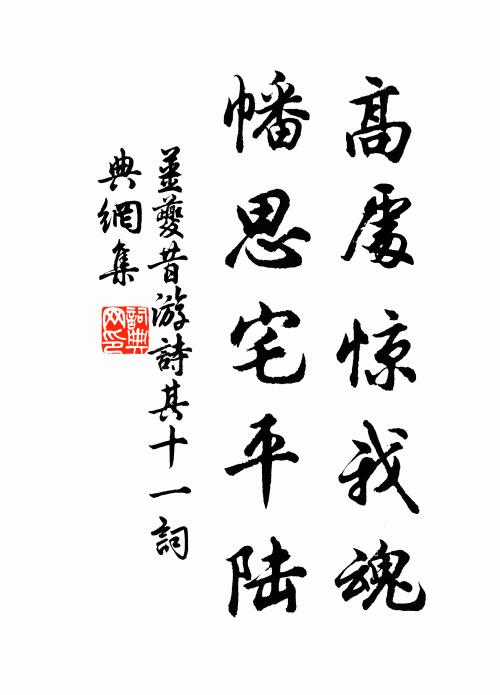 高處惊我魂
幡思宅平陆
薑夔昔游詩其十一詞
典網集
詞典
网印